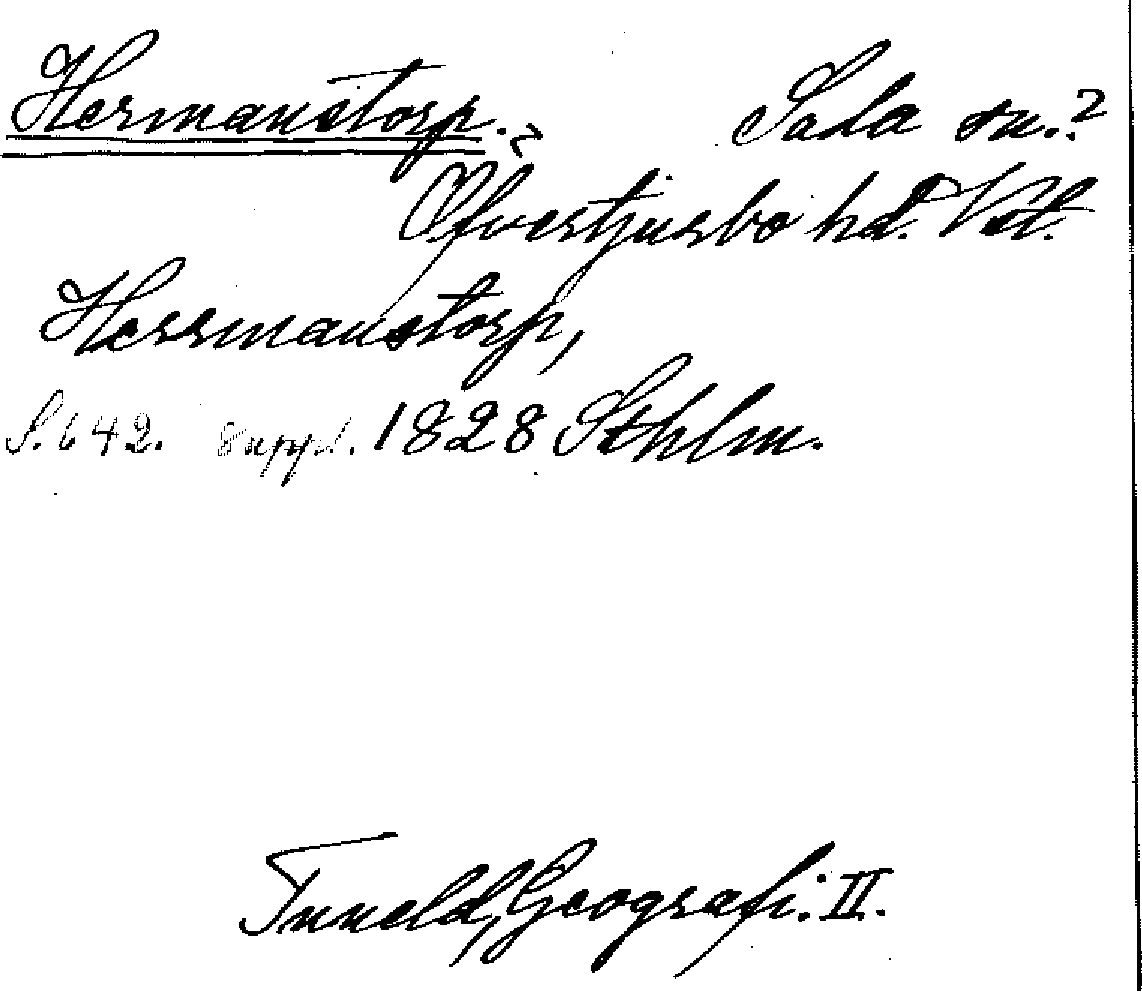 Hermanstorp.? Sala sn.?
Öfvertjurbo hd. Vstl.
Herrmanstorp,
S. 642. Suppl. 1828 Sthlm.
Tuneld, Geografi. II.